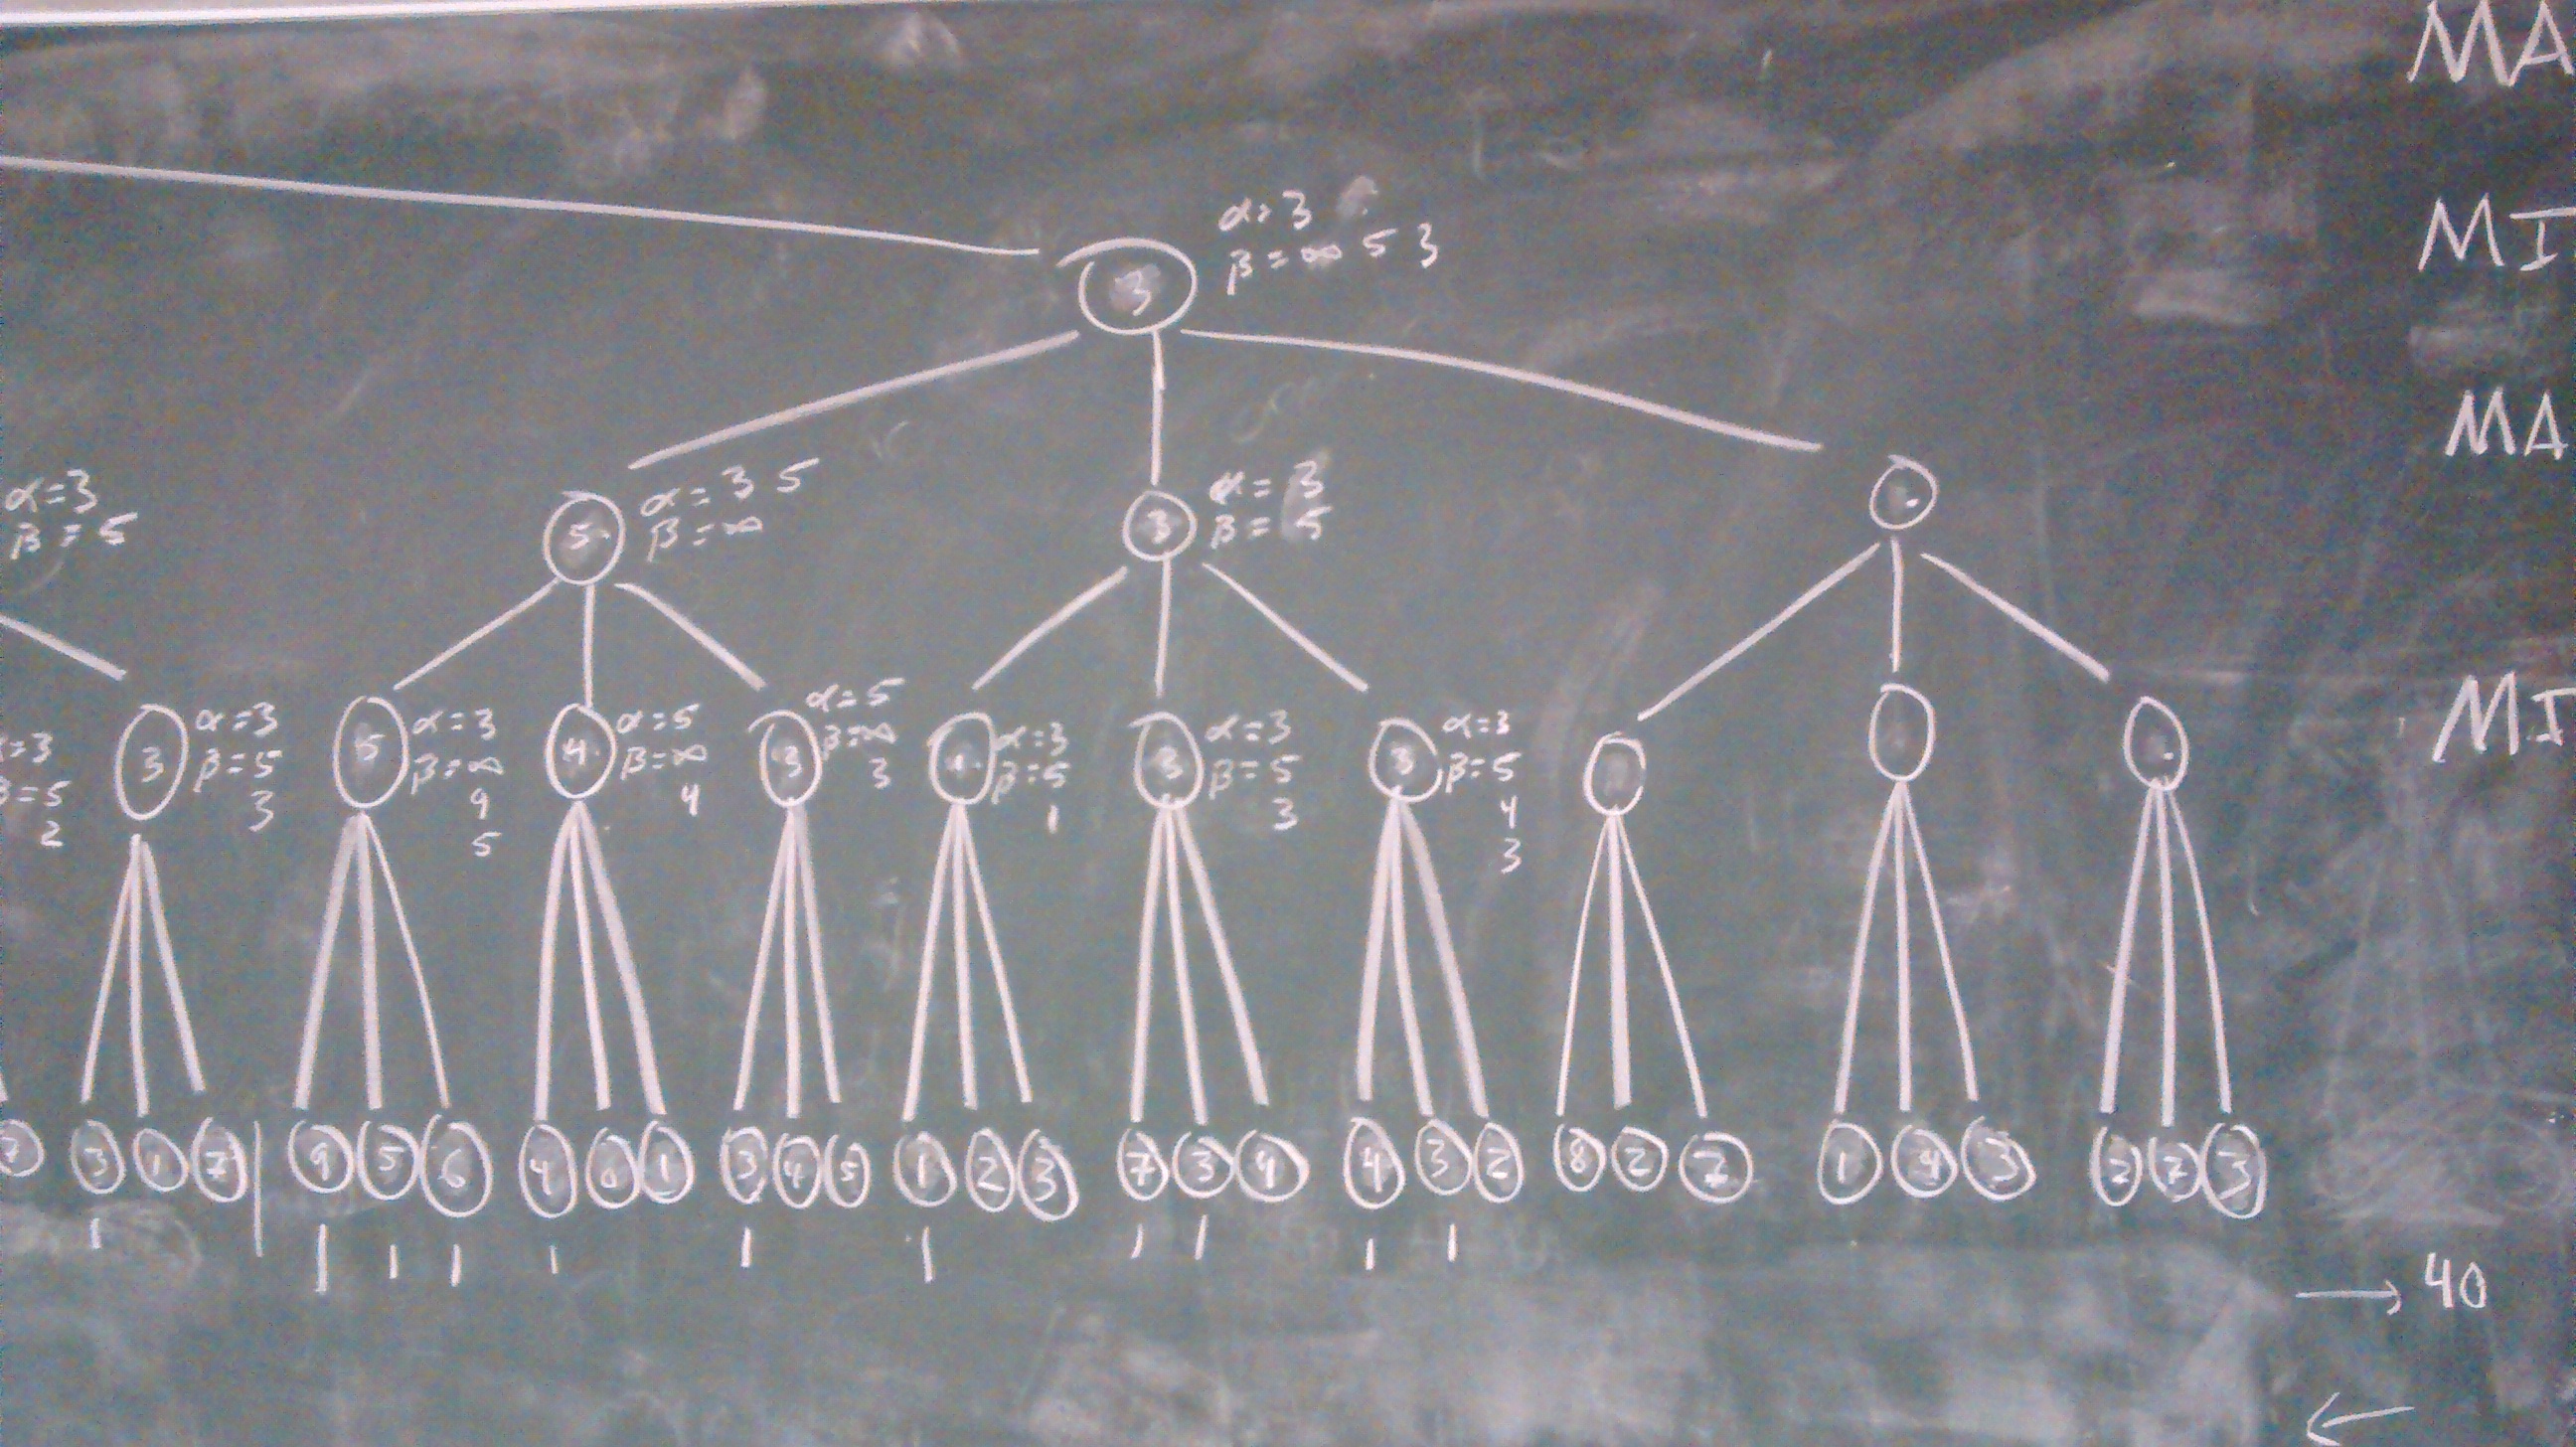 MA
α=3
β=∞ 5 3
MI
3
MA
α=3
β=5
5
α=3 5
β=∞
3
α=3
β=5
MI
=3
β=5
2
3
α=3
β=5
3
5
α=3
β=∞
9
5
4
α=5
β=∞
4
3
α=5
β=∞
3
1
α=3
β=5
1
3
α=3
β=5
3
3
α=3
β=5
4
3
3 1 7 | 9 5 6 4 0 1 3 4 5 1 2 3 7 3 4 4 3 2 8 2 7 1 4 3 2 7 3
| | | | | | | | | | |
→ 40
←